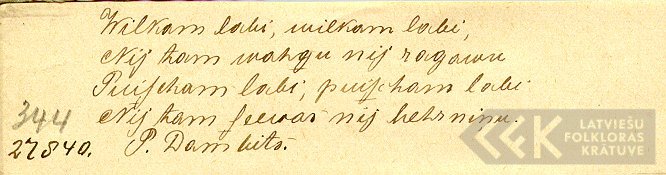 Wilkam labi, wilkam labi,
Nij tam wahgu nij ragawu
Puischam labi, puischam labi
344 Nij tam seewas nij behrninu.
27840. P. Dambits.
LATVIEŠU
FOLKLORAS
KRĀTUVE